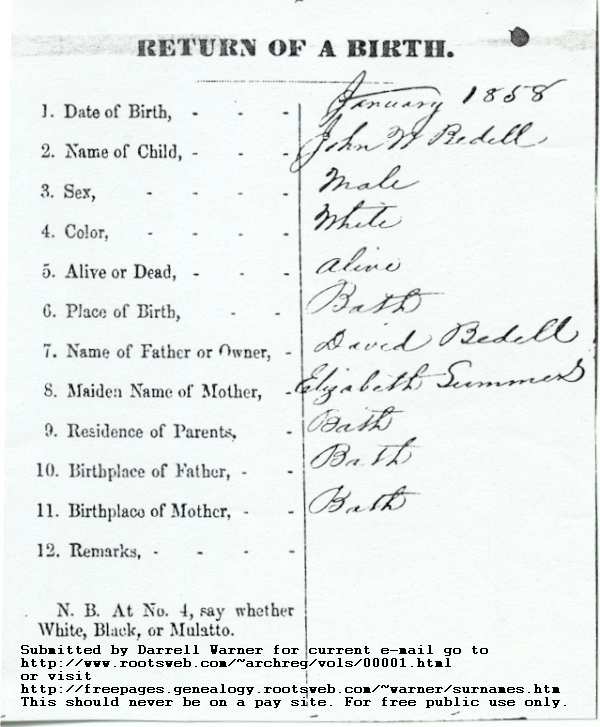 RETURN OF A BIRTH.
1. Date of Birth, - - - January 1858
2. Name of Child, - - - John W Bedell
3. Sex, - - - - Male
4. Color, - - - - White
5. Alive or Dead, - - - alive
6. Place of Birth, - - Bath
7. Name of Father or Owner, - David Bedell
8. Maiden Name of Mother, - Elizabeth Summers
9. Residence of Parents, - Bath
10. Birthplace of Father, - - Bath
11. Birthplace of Mother, - - Bath
12. Remarks, - - - -
N. B. At No. 4, say whether
White, Black, or Mulatto.
Submitted by Darrell Warner for current e-mail go to
http://www.rootsweb.com/~archreg/vols/00001.html
or visit
http://freepages.genealogy.rootsweb.com/~warner/surnames.htm
This should never be on a pay site. For free public use only.